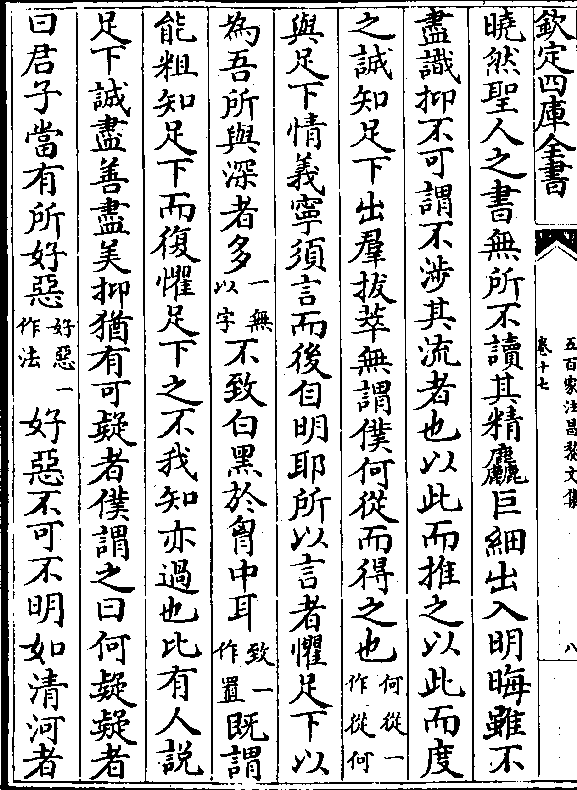 欽定四庫全書
五百家注昌黎文集
卷十七
八
曉然聖人之書無所不讀其精麤巨細出入明晦雖不
盡識抑不可謂不涉其流者也以此而推之以此而度
之誠知足下出羣拔萃無謂僕何從而得之也何從一作從何
與足下情義寧須言而後自明耶所以言者懼足下以
為吾所與深者多一無以字不致白黑於胷中耳致一作置既謂
能粗知足下而復懼足下之不我知亦過也比有人説
足下誠盡善盡美抑猶有可疑者僕謂之曰何疑疑者
曰君子當有所好惡好惡一作法好惡不可不明如清河者